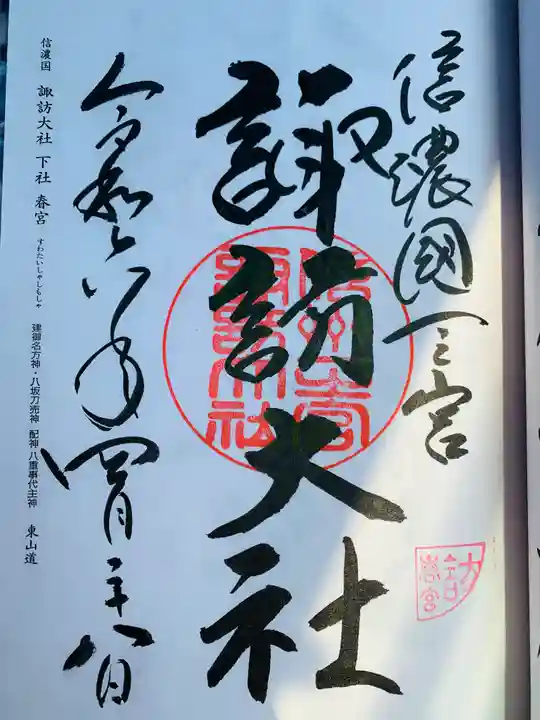 信濃國一之宮
諏訪大社
令和六年四月二十八日
信濃国 諏訪大社 下社 春宮 すわたいしゃしもしゃ 建御名方神・八坂刀売神 配神 八重事代主神 東山道
春宮